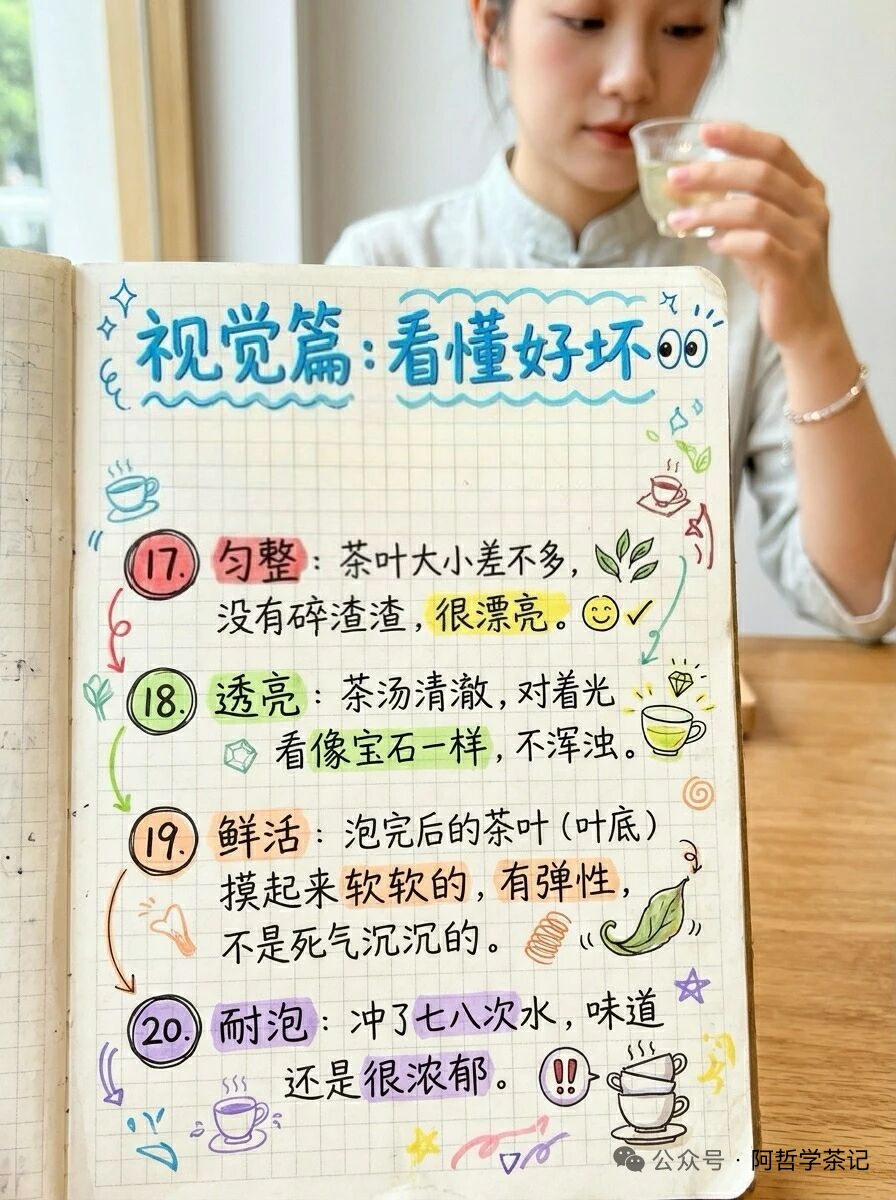 视觉篇:看懂好坏
17. 匀整:茶叶大小差不多,
没有碎渣渣,很漂亮。
18. 透亮:茶汤清澈,对着光
看像宝石一样,不浑浊。
19. 鲜活:泡完后的茶叶(叶底)
摸起来软软的,有弹性,
不是死气沉沉的。
20. 耐泡:冲了七八次水,味道
还是很浓郁。
!!
公众号·阿哲学茶记